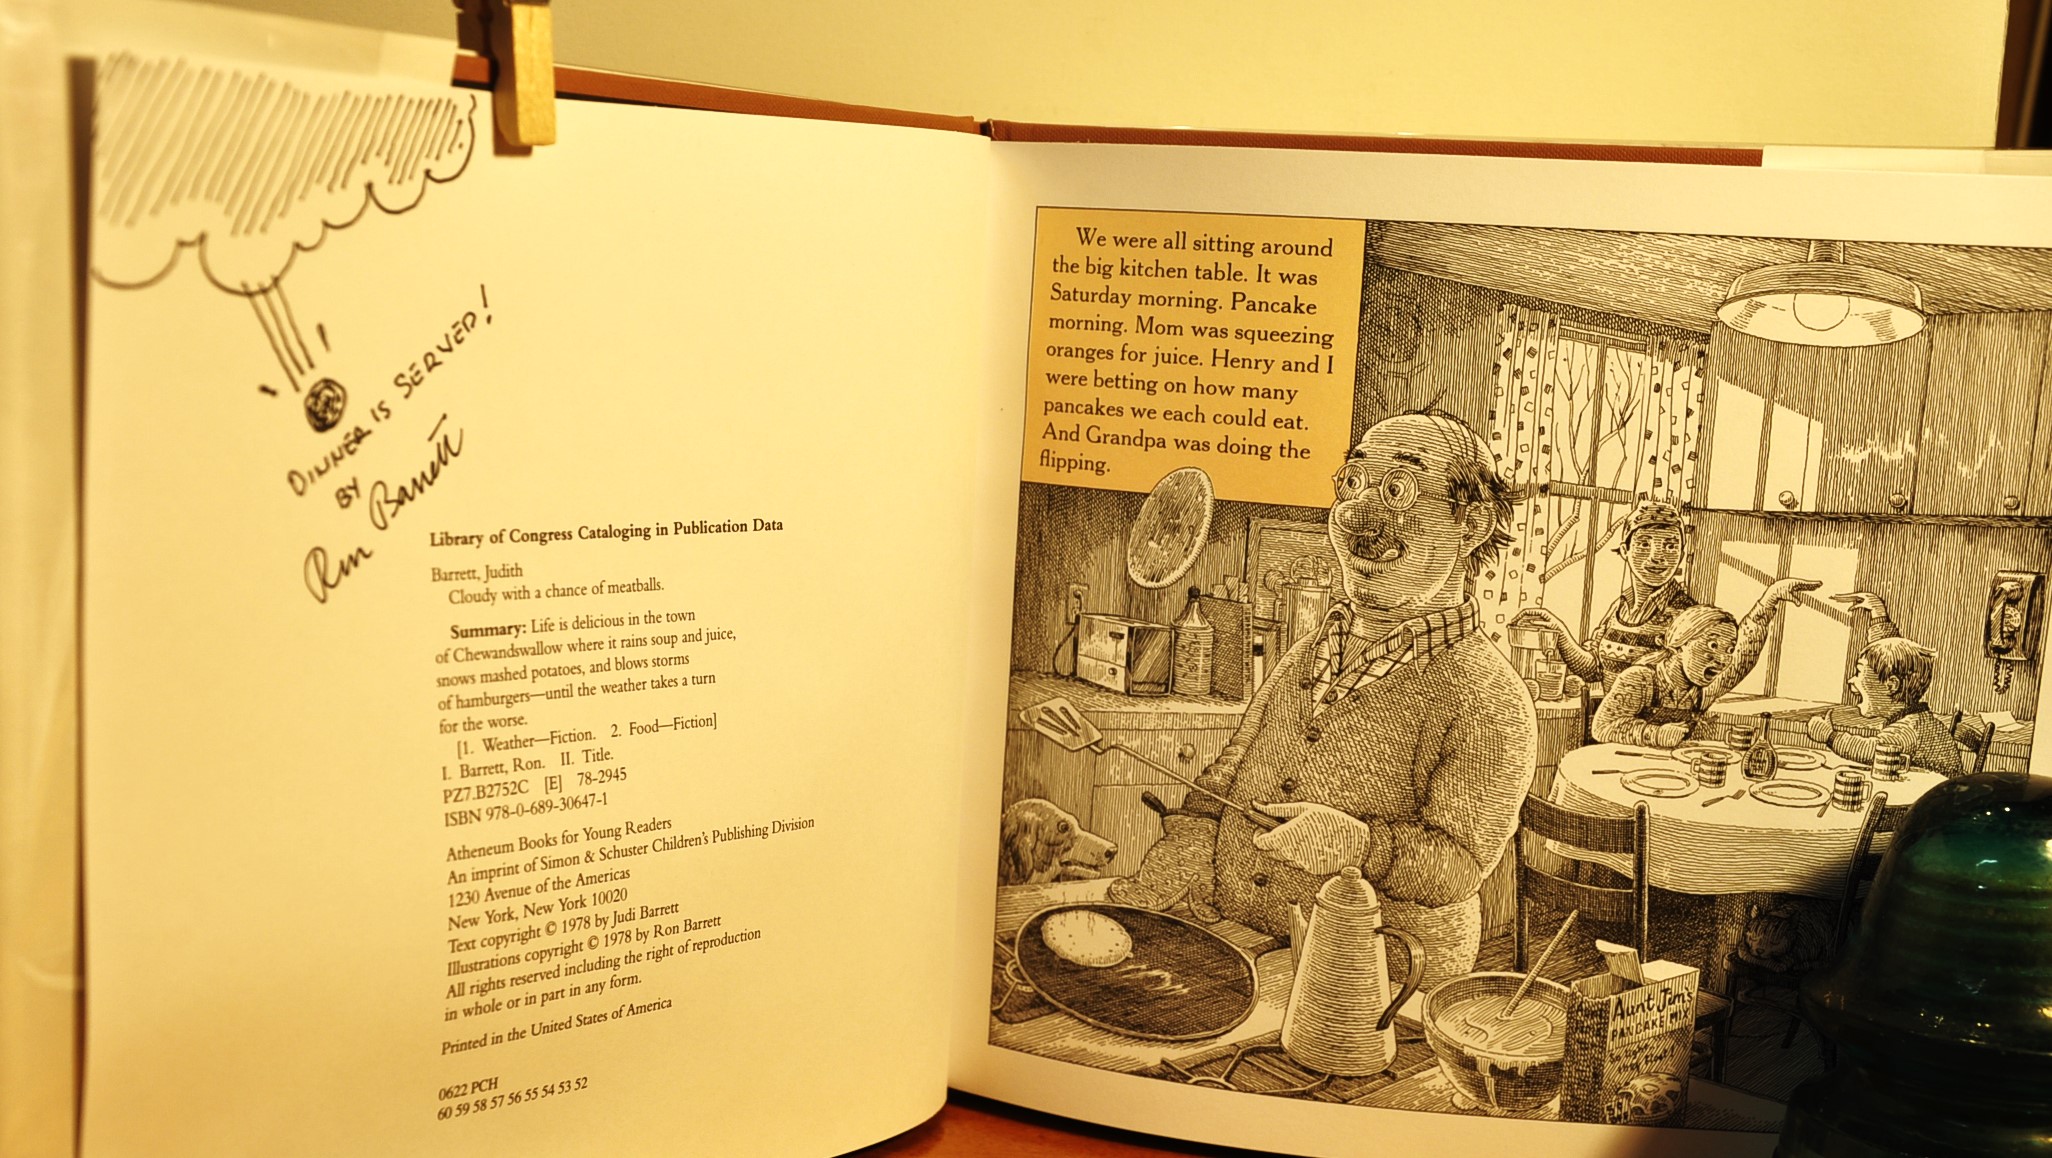 DINNER IS SERVED!
BY
Ron Barrett
Library of Congress Cataloging in Publication Data
Barrett, Judith
Cloudy with a chance of meatballs.
Summary: Life is delicious in the town
of Chewandswallow where it rains soup and juice,
snows mashed potatoes, and blows storms
of hamburgers—until the weather takes a turn
for the worse.
[1. Weather—Fiction. 2. Food—Fiction]
I. Barrett, Ron. II. Title.
PZ7.B2752C [E] 78-2945
ISBN 978-0-689-30647-1
Atheneum Books for Young Readers
An imprint of Simon & Schuster Children's Publishing Division
1230 Avenue of the Americas
New York, New York 10020
Text copyright © 1978 by Judi Barrett
Illustrations copyright © 1978 by Ron Barrett
All rights reserved including the right of reproduction
in whole or in part in any form.
Printed in the United States of America
0622 PCH
60 59 58 57 56 55 54 53 52
We were all sitting around
the big kitchen table. It was
Saturday morning. Pancake
morning. Mom was squeezing
oranges for juice. Henry and I
were betting on how many
pancakes we each could eat.
And Grandpa was doing the
flipping.
Aunt Jim's
PANCAKE MIX